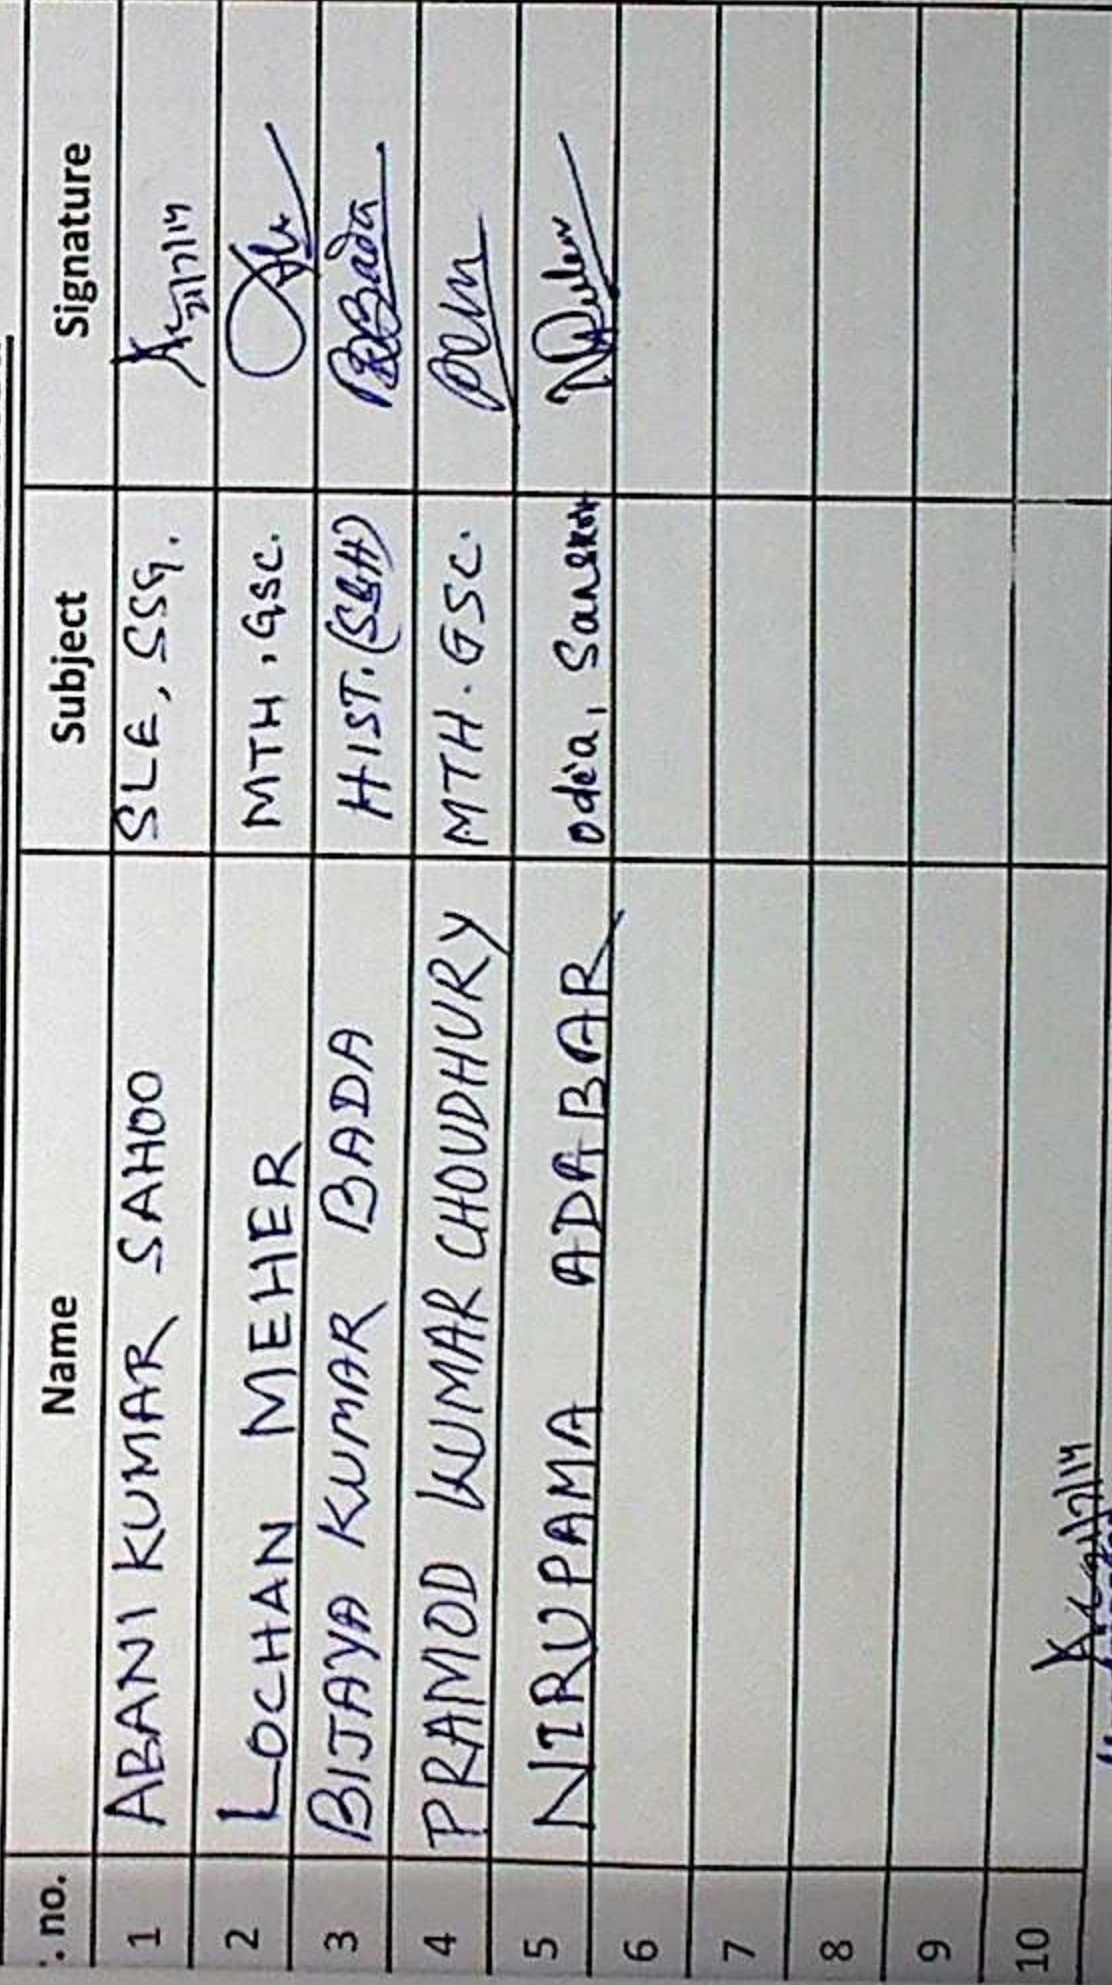 . no. Name Subject Signature
1 ABANI KUMAR SAHOO SLE, SSG. 21/7/14
2 LOCHAN MEHER MTH, GSC.
3 BIJAYA KUMAR BADA HIST. BBada
4 PRAMOD KUMAR CHOUDHURY MTH. GSC.
5 NIRUPAMA ADABAR
6
7
8
9
10
21/7/14